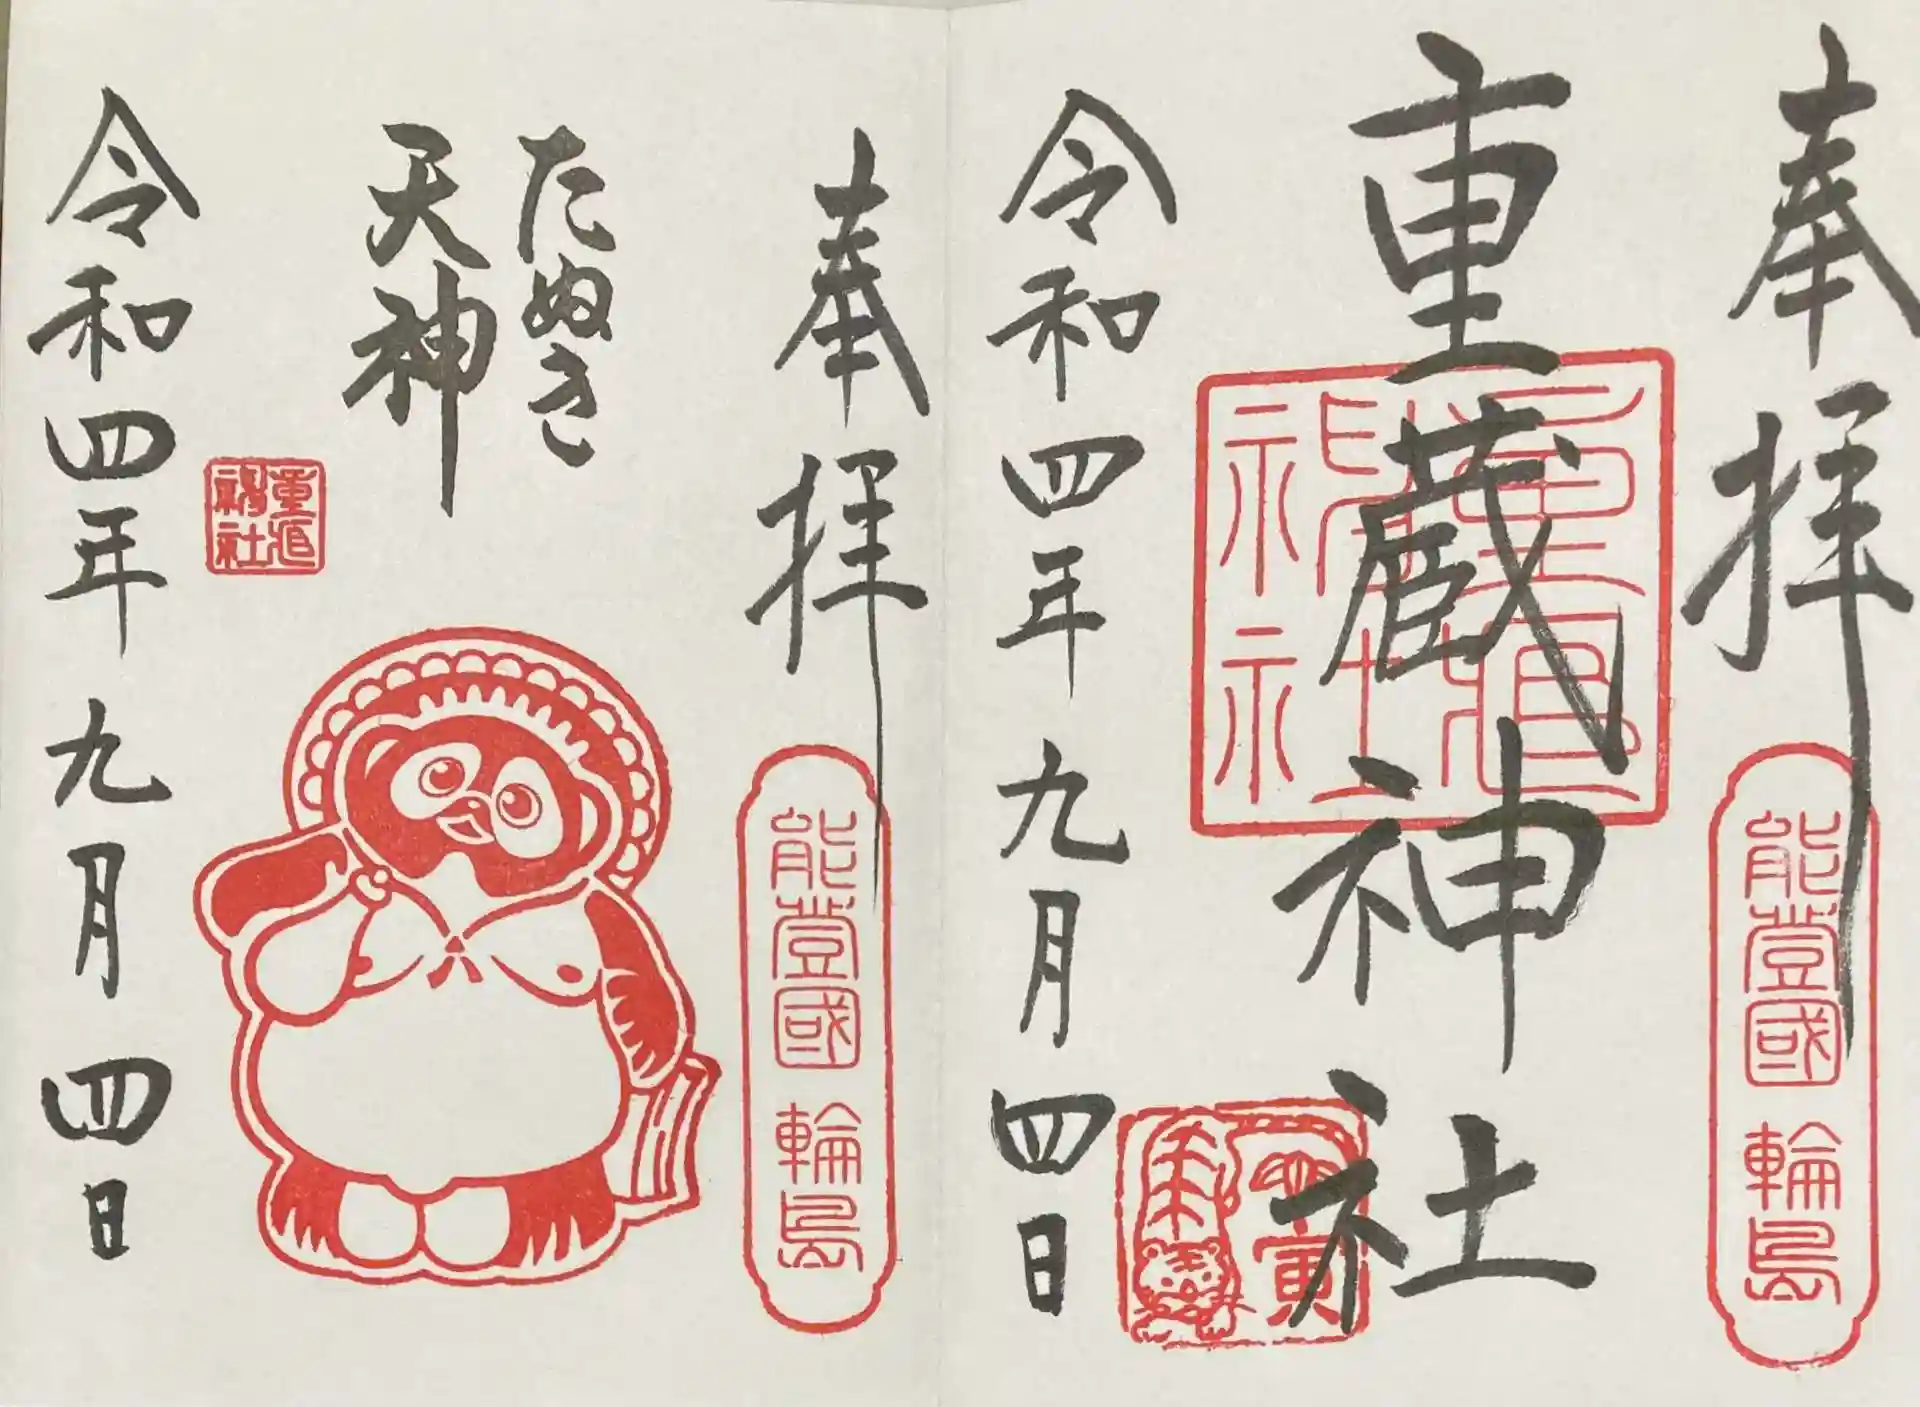 奉拝
能登國 輪島
重蔵神社
重蔵神社
壬寅
令和四年九月四日
奉拝
能登國 輪島
たぬき
天神
重蔵神社
令和四年九月四日